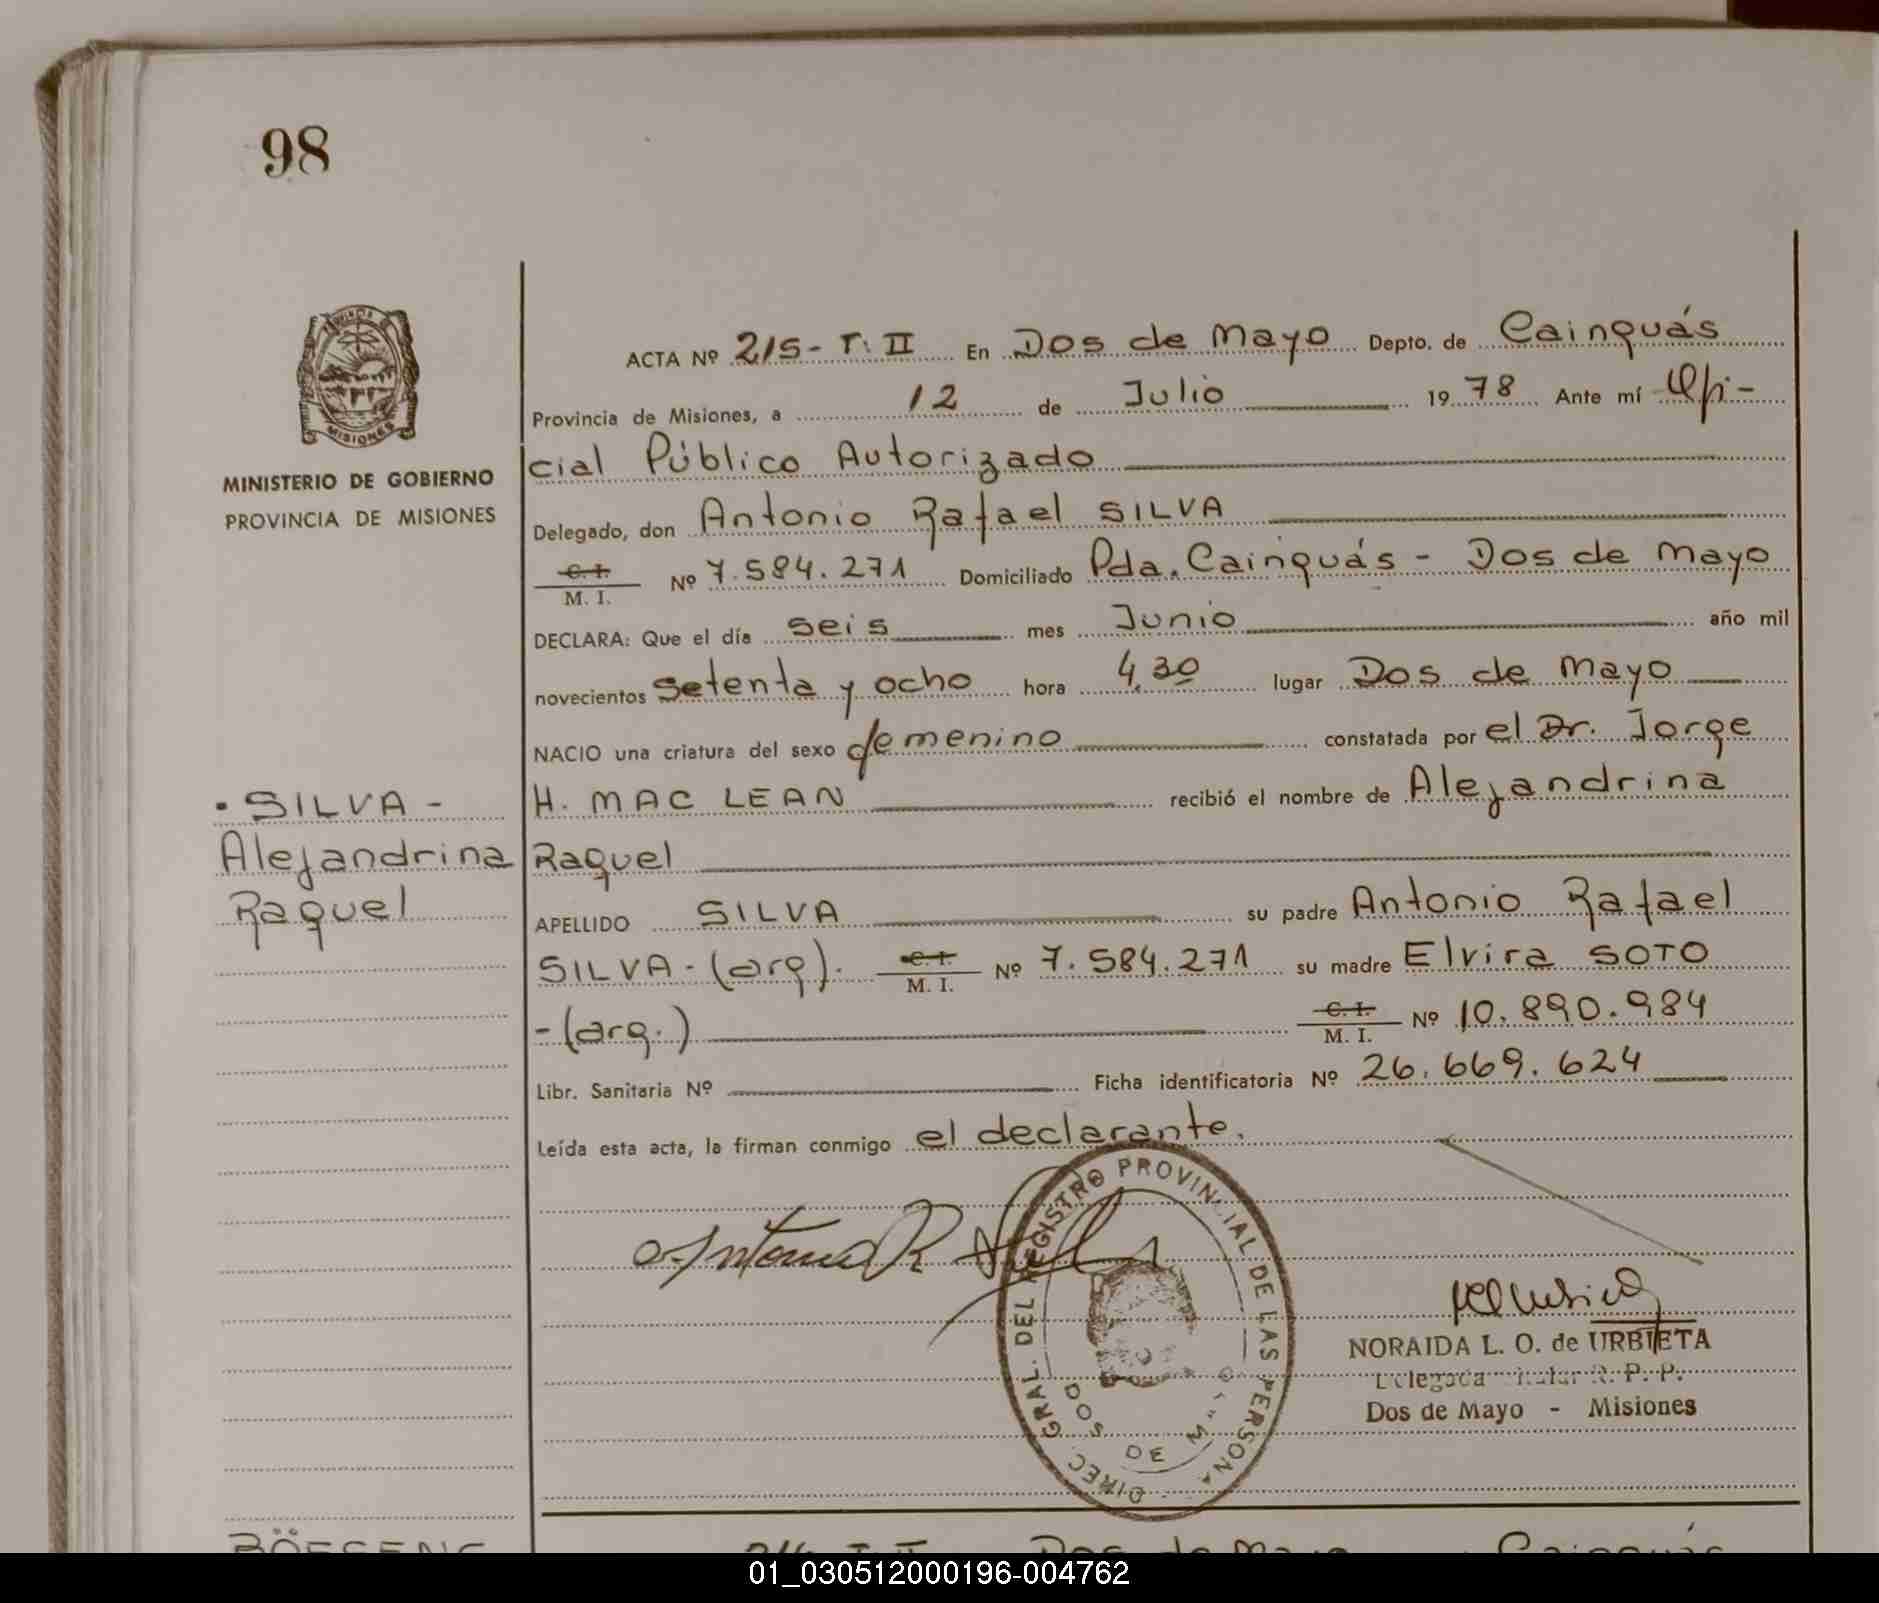 98
PROVINCIA DE
MISIONES
MINISTERIO DE GOBIERNO
PROVINCIA DE MISIONES
ACTA Nº 215-T. II En Dos de Mayo Depto. de Cainguás
Provincia de Misiones, a 12 de Julio 1978 Ante mí Ofi-
cial Público Autorizado
Delegado, don Antonio Rafael SILVA
C. I.
M. I. Nº 7.584.271 Domiciliado Pda. Cainguás - Dos de Mayo
DECLARA: Que el día seis mes Junio año mil
novecientos setenta y ocho hora 4,30 lugar Dos de Mayo
NACIO una criatura del sexo femenino constatada por el Dr. Jorge
H. MAC LEAN recibió el nombre de Alejandrina
Raquel
APELLIDO SILVA su padre Antonio Rafael
SILVA-(arg). C. I. M. I. Nº 7.584.271 su madre Elvira SOTO
-(arg.) C. I. M. I. Nº 10.890.984
Libr. Sanitaria Nº Ficha identificatoria Nº 26.669.624
Leída esta acta, la firman conmigo el declarante.
• SILVA -
Alejandrina
Raquel
Antonio R Silva
DIREC. GRAL. DEL REGISTRO PROVINCIAL DE LAS PERSONA
DOS DE M
NORAIDA L. O. de URBIETA
Delegada Titular R. P. P.
Dos de Mayo - Misiones
216 T. II Dos de Mayo Cainguás
01_030512000196-004762